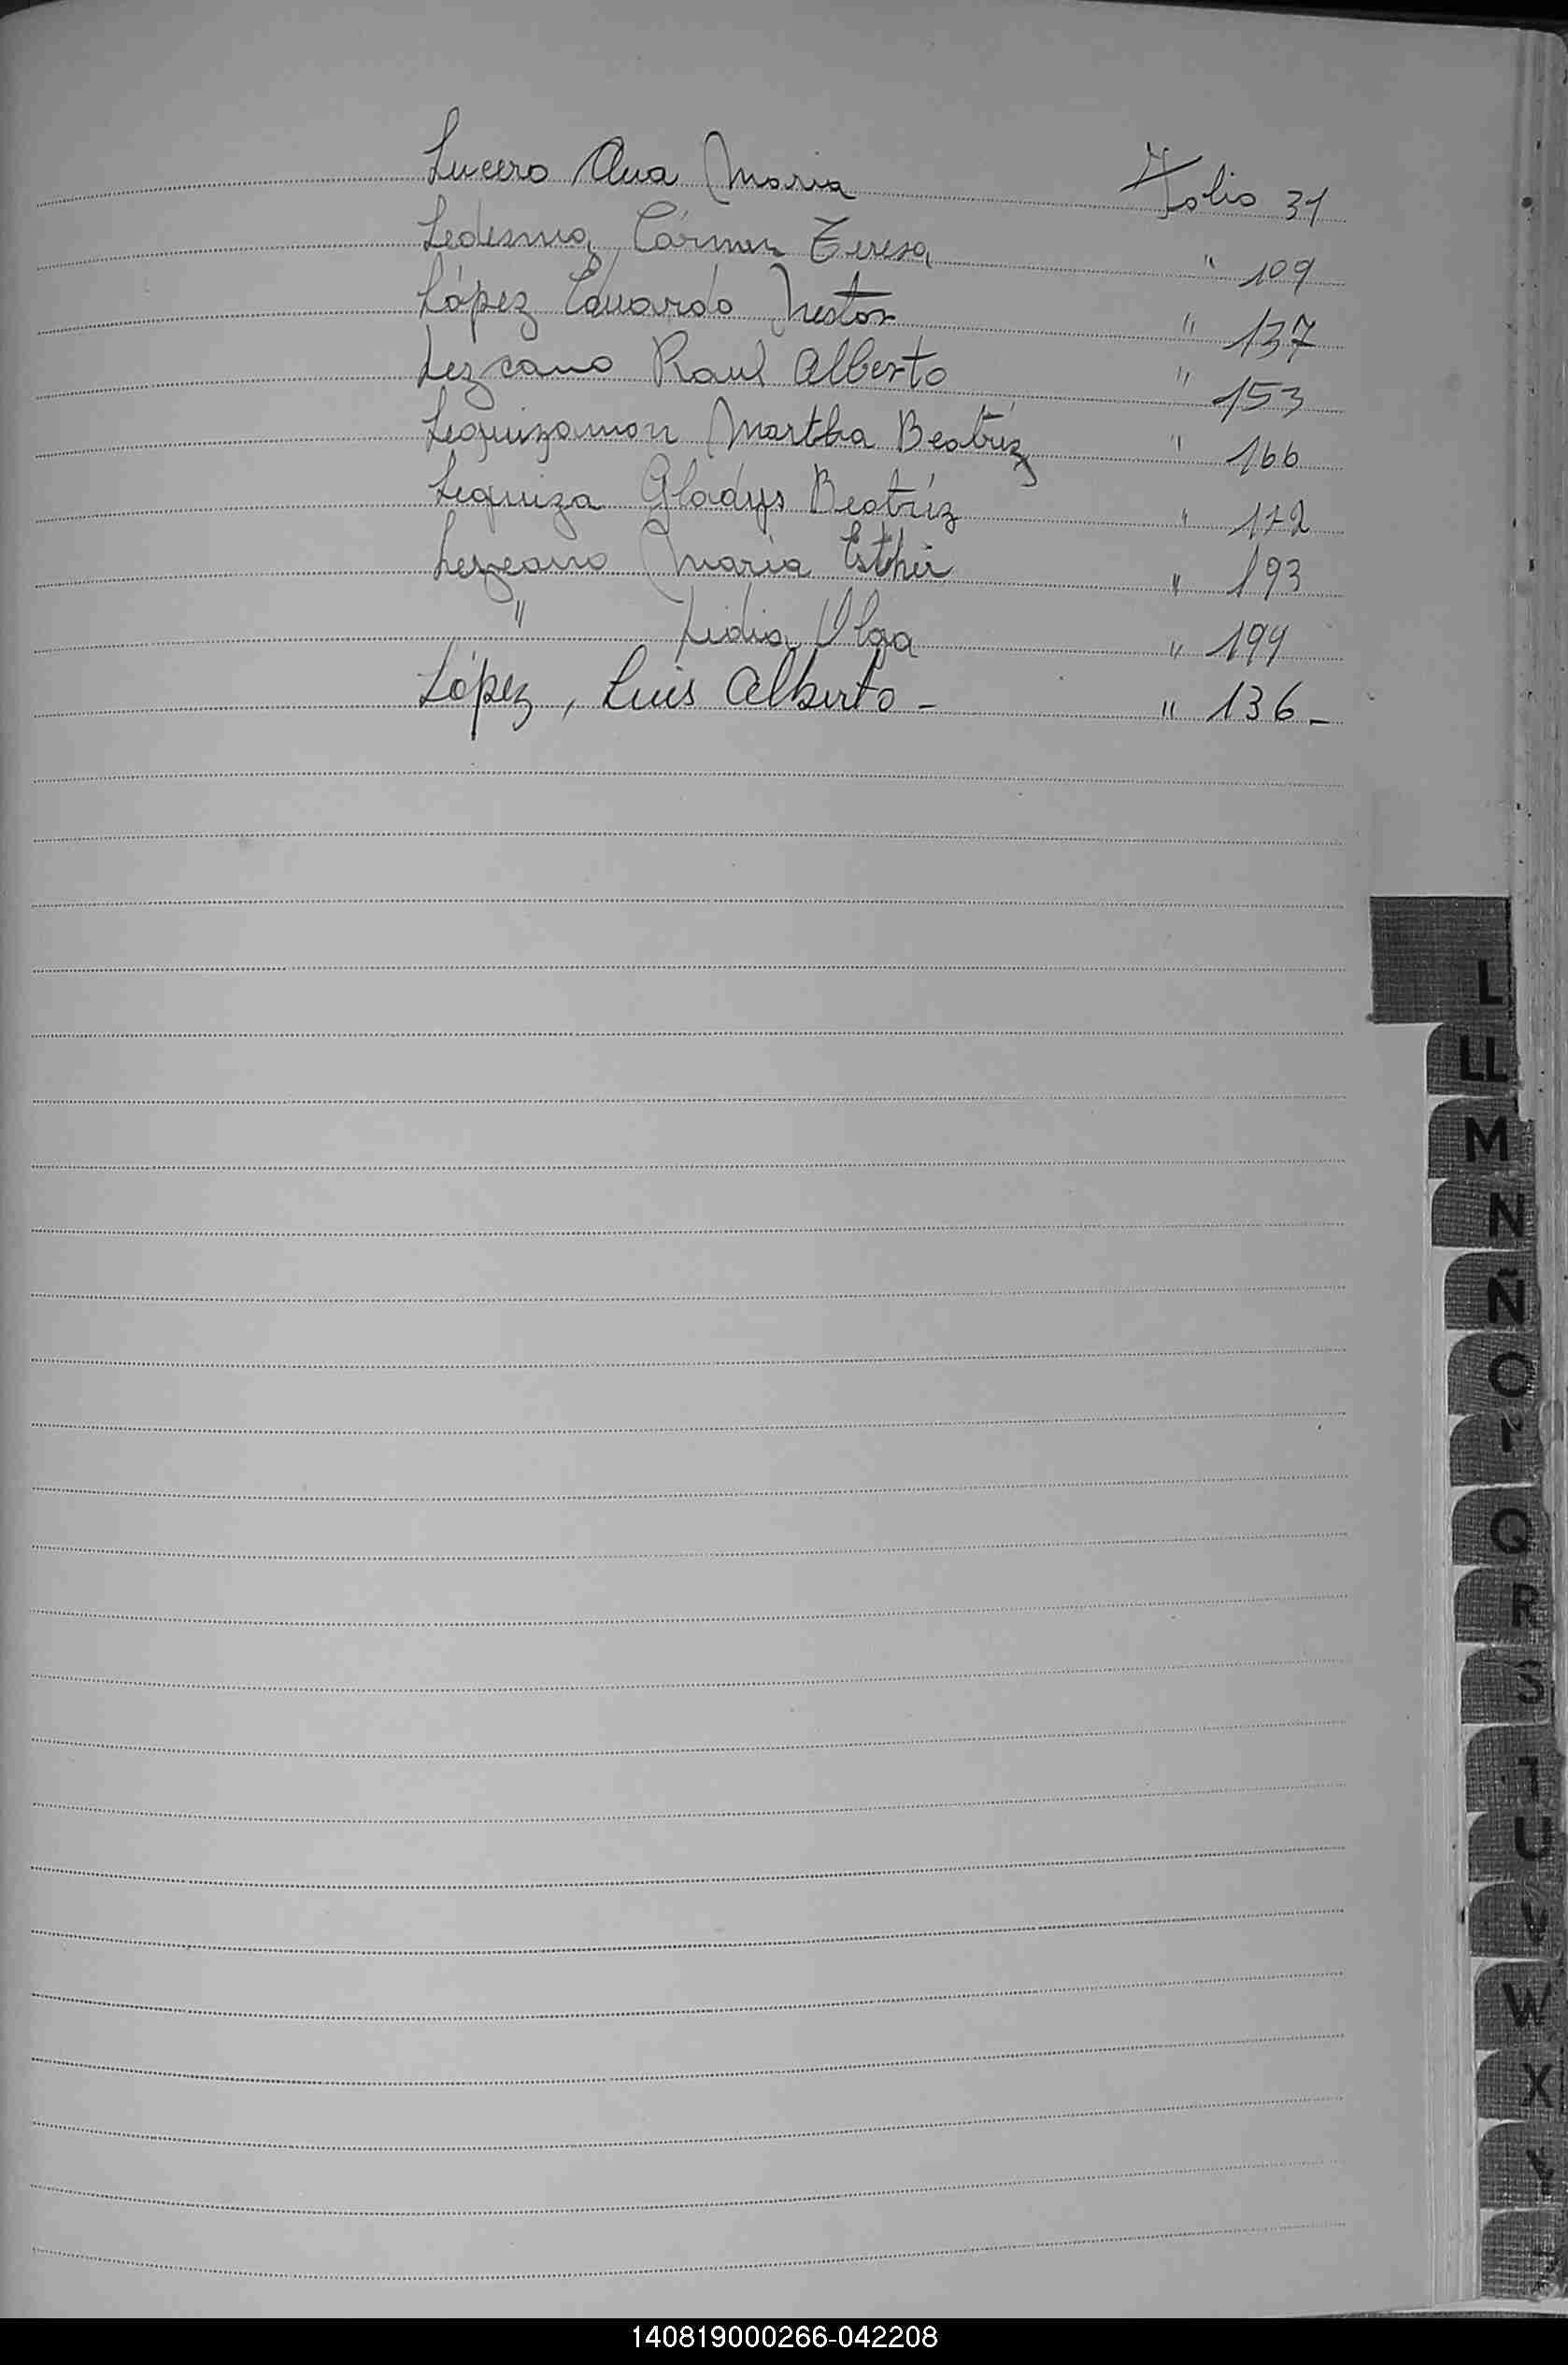 Lucero Ana Maria Folio 31
Ledesma, Cármen Teresa " 109
López Eduardo Nestor " 137
Lezcano Raul Alberto " 153
Leguizamon Martha Beatríz " 166
Leguiza Gladys Beatríz " 172
Lezcano Maria Esther " 193
" Lidia Olga " 194
López, Luis Alberto - " 136 -
L
LL
M
N
Ñ
O
Q
R
S
T
U
V
W
X
Y
140819000266-042208